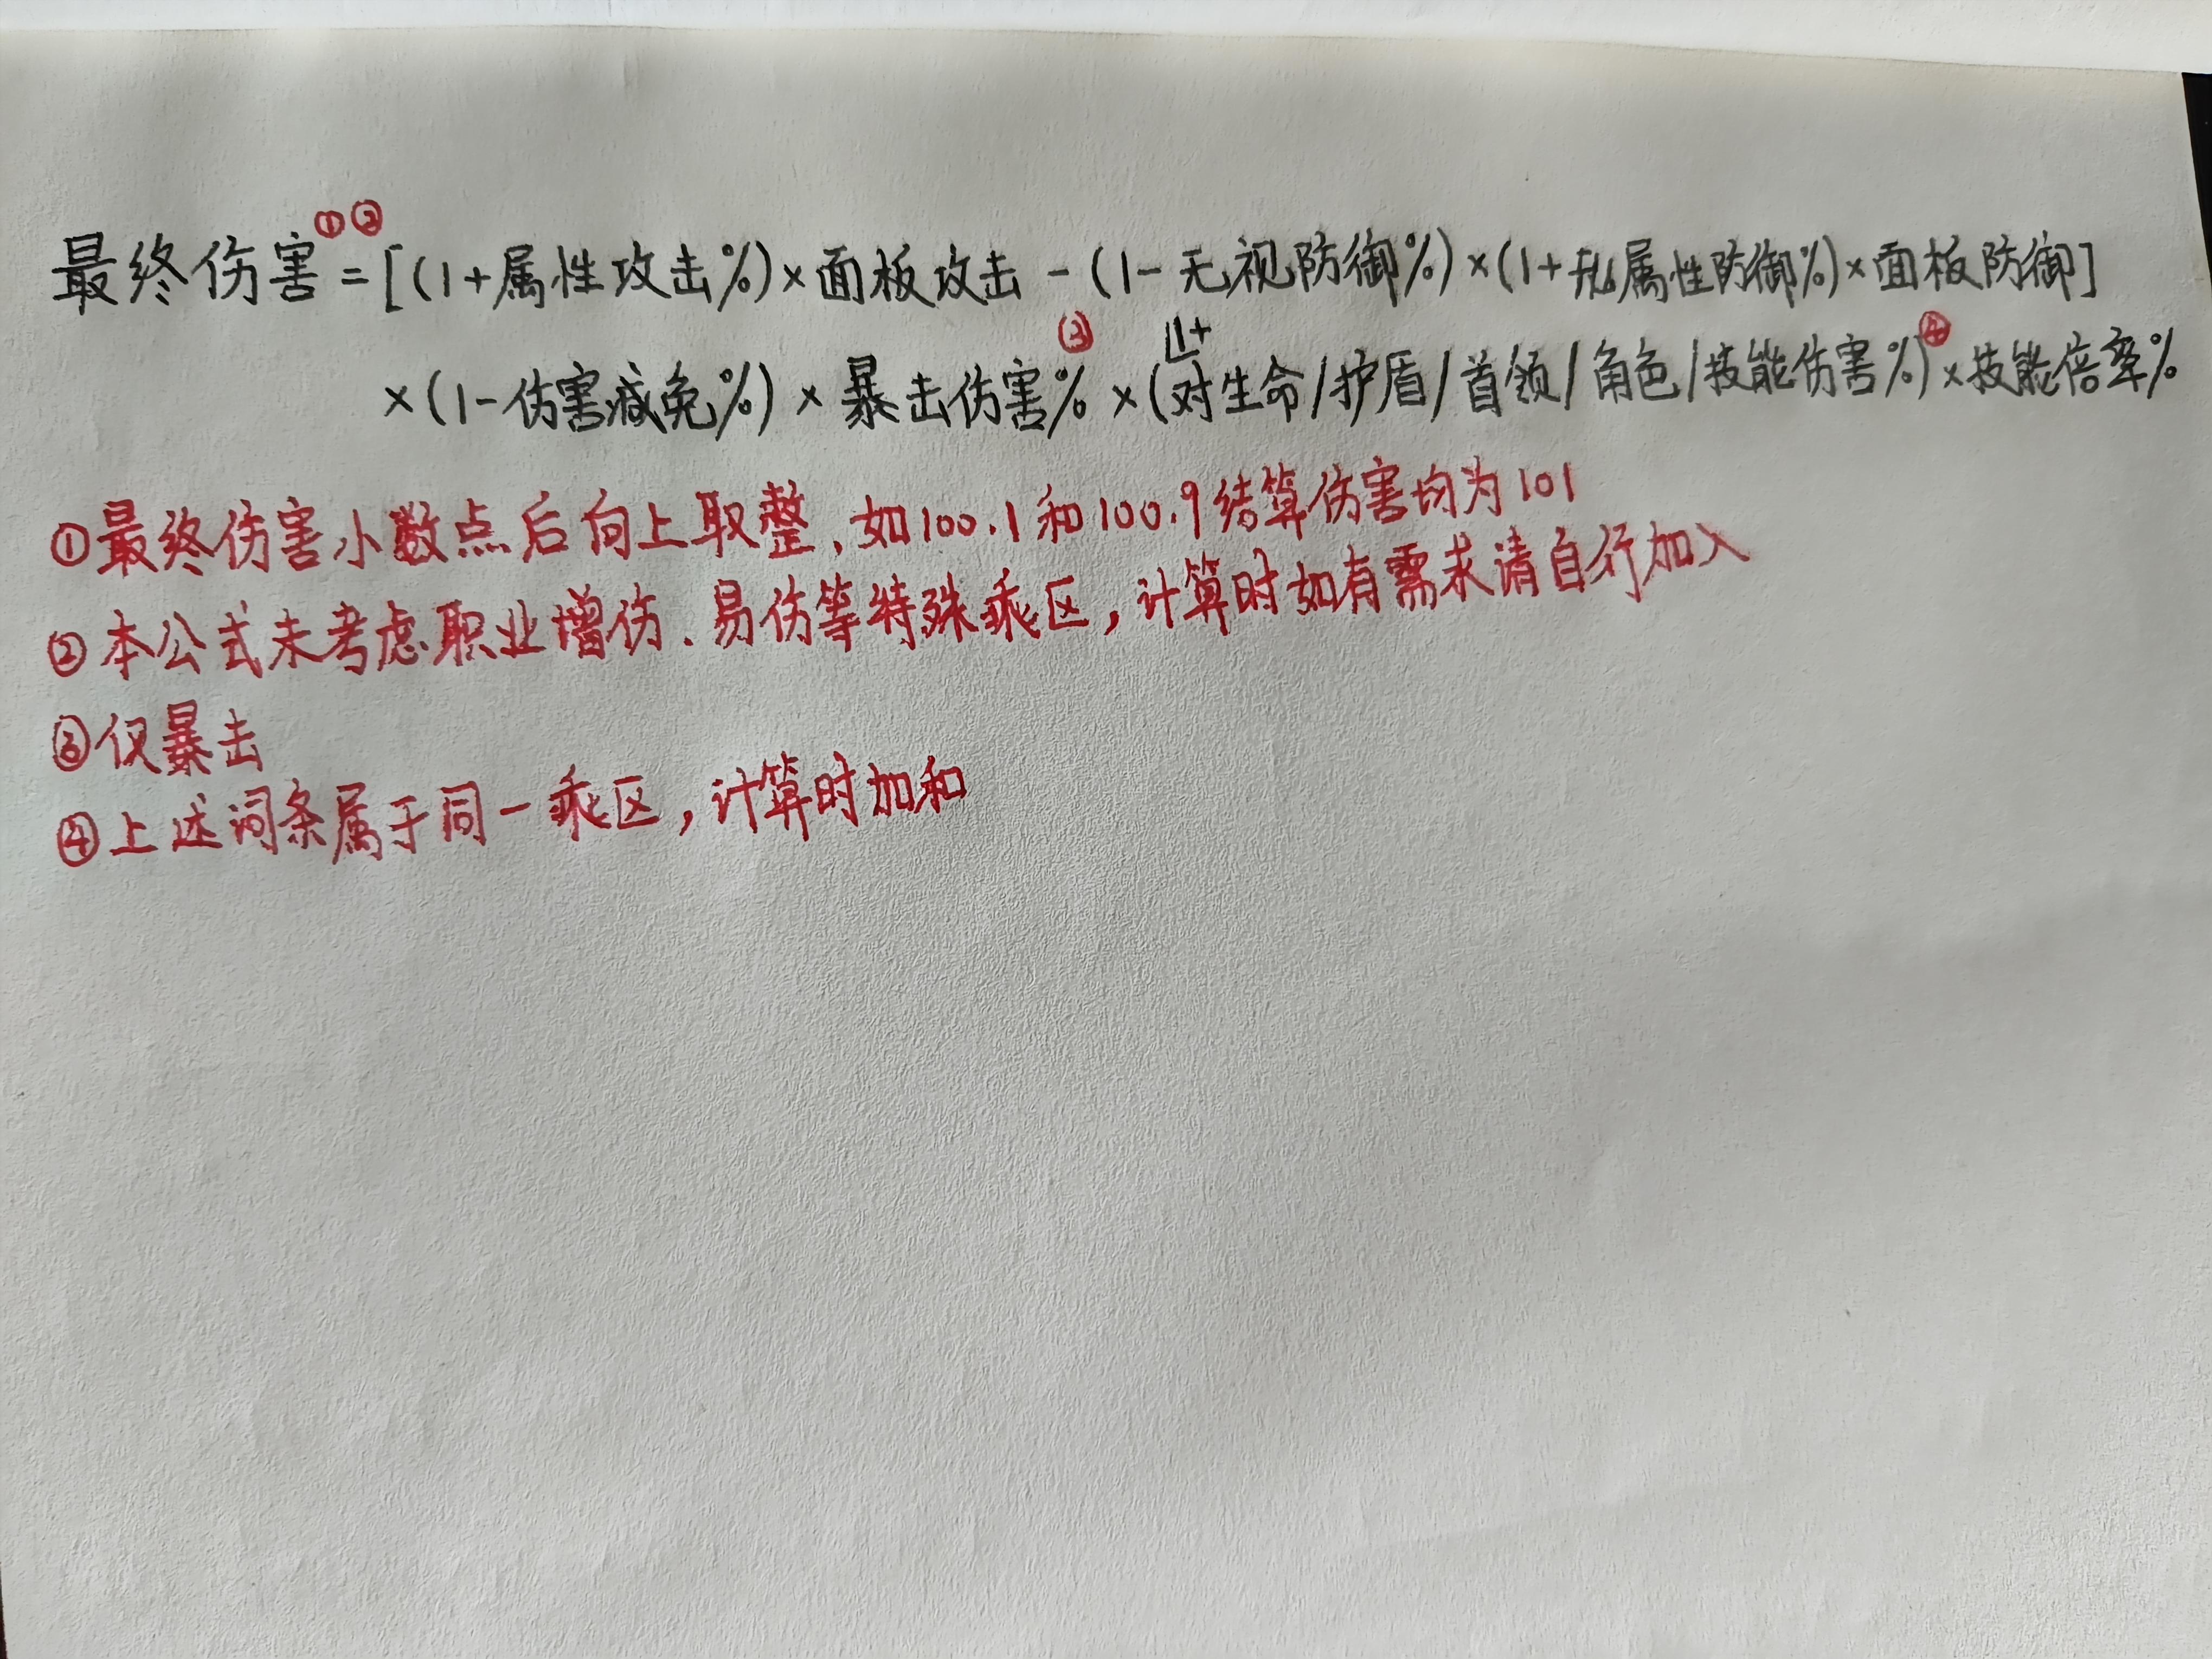 最终伤害①②=[(1+属性攻击%)×面板攻击-(1-无视防御%)×(1+属性防御%)×面板防御]
×(1-伤害减免%)×暴击伤害%③×(1+对生命/护盾/首领/角色/技能伤害%)④×技能倍率%
①最终伤害小数点后向上取整,如100.1和100.9结算伤害均为101
②本公式未考虑职业增伤、易伤等特殊乘区,计算时如有需求请自行加入
③仅暴击
④上述词条属于同一乘区,计算时加和